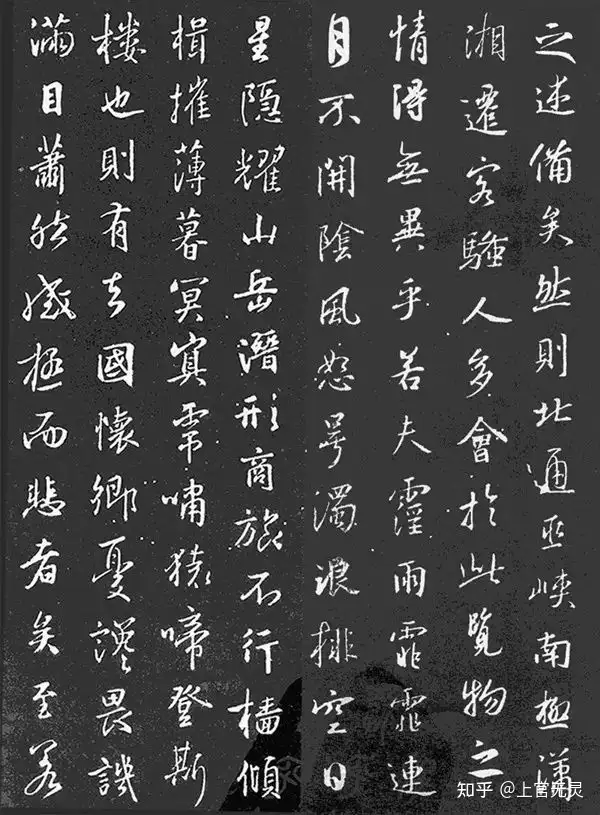 之述備矣然則北通巫峽南極瀟
湘遷客騷人多會於此覽物之
情得無異乎若夫霪雨霏霏連
月不開陰風怒号濁浪排空日
星隱耀山岳潛形商旅不行檣傾
楫摧薄暮冥冥虎嘯猿啼登斯
樓也則有去國懷鄉憂讒畏譏
滿目蕭然感極而悲者矣至若
知乎 @上官死灵